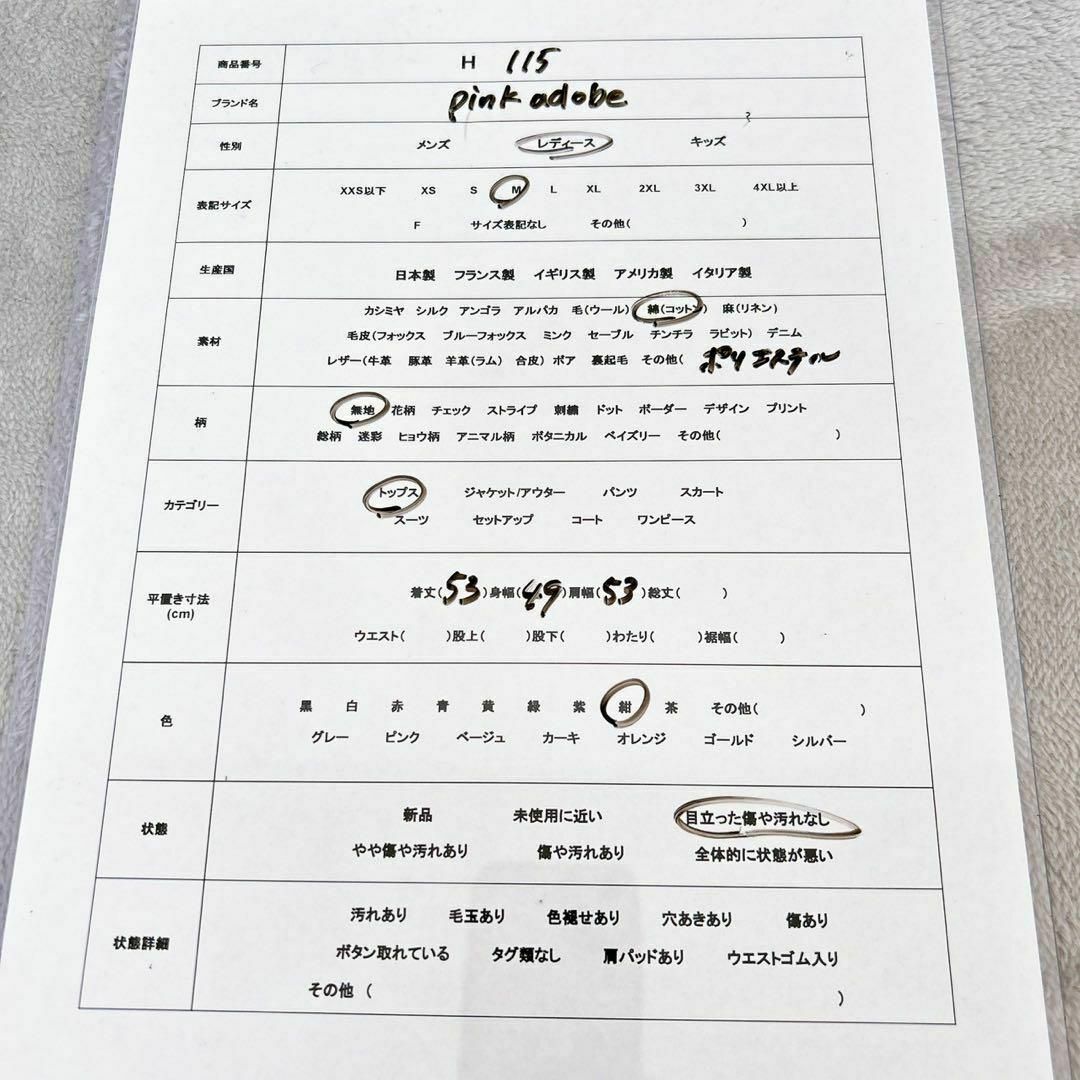 商品番号 H 115
ブランド名 pink adobe
性別 メンズ レディース キッズ
XXS以下 XS S M L XL 2XL 3XL 4XL以上
表記サイズ
F サイズ表記なし その他( )
生産国 日本製 フランス製 イギリス製 アメリカ製 イタリア製
カシミヤ シルク アンゴラ アルパカ 毛(ウール) 綿(コットン) 麻(リネン)
素材 毛皮(フォックス ブルーフォックス ミンク セーブル チンチラ ラビット) デニム
レザー(牛革 豚革 羊革(ラム) 合皮) ボア 裏起毛 その他( ポリエステル
無地 花柄 チェック ストライプ 刺繍 ドット ボーダー デザイン プリント
柄
総柄 迷彩 ヒョウ柄 アニマル柄 ボタニカル ペイズリー その他( )
トップス ジャケット/アウター パンツ スカート
カテゴリー
スーツ セットアップ コート ワンピース
平置き寸法 着丈(53)身幅(49)肩幅(53)総丈( )
(cm)
ウエスト( )股上( )股下( )わたり( )裾幅( )
黒 白 赤 青 黄 緑 紫 紺 茶 その他( )
色
グレー ピンク ベージュ カーキ オレンジ ゴールド シルバー
新品 未使用に近い 目立った傷や汚れなし
状態
やや傷や汚れあり 傷や汚れあり 全体的に状態が悪い
汚れあり 毛玉あり 色褪せあり 穴あきあり 傷あり
状態詳細 ボタン取れている タグ類なし 肩パッドあり ウエストゴム入り
その他 ( )